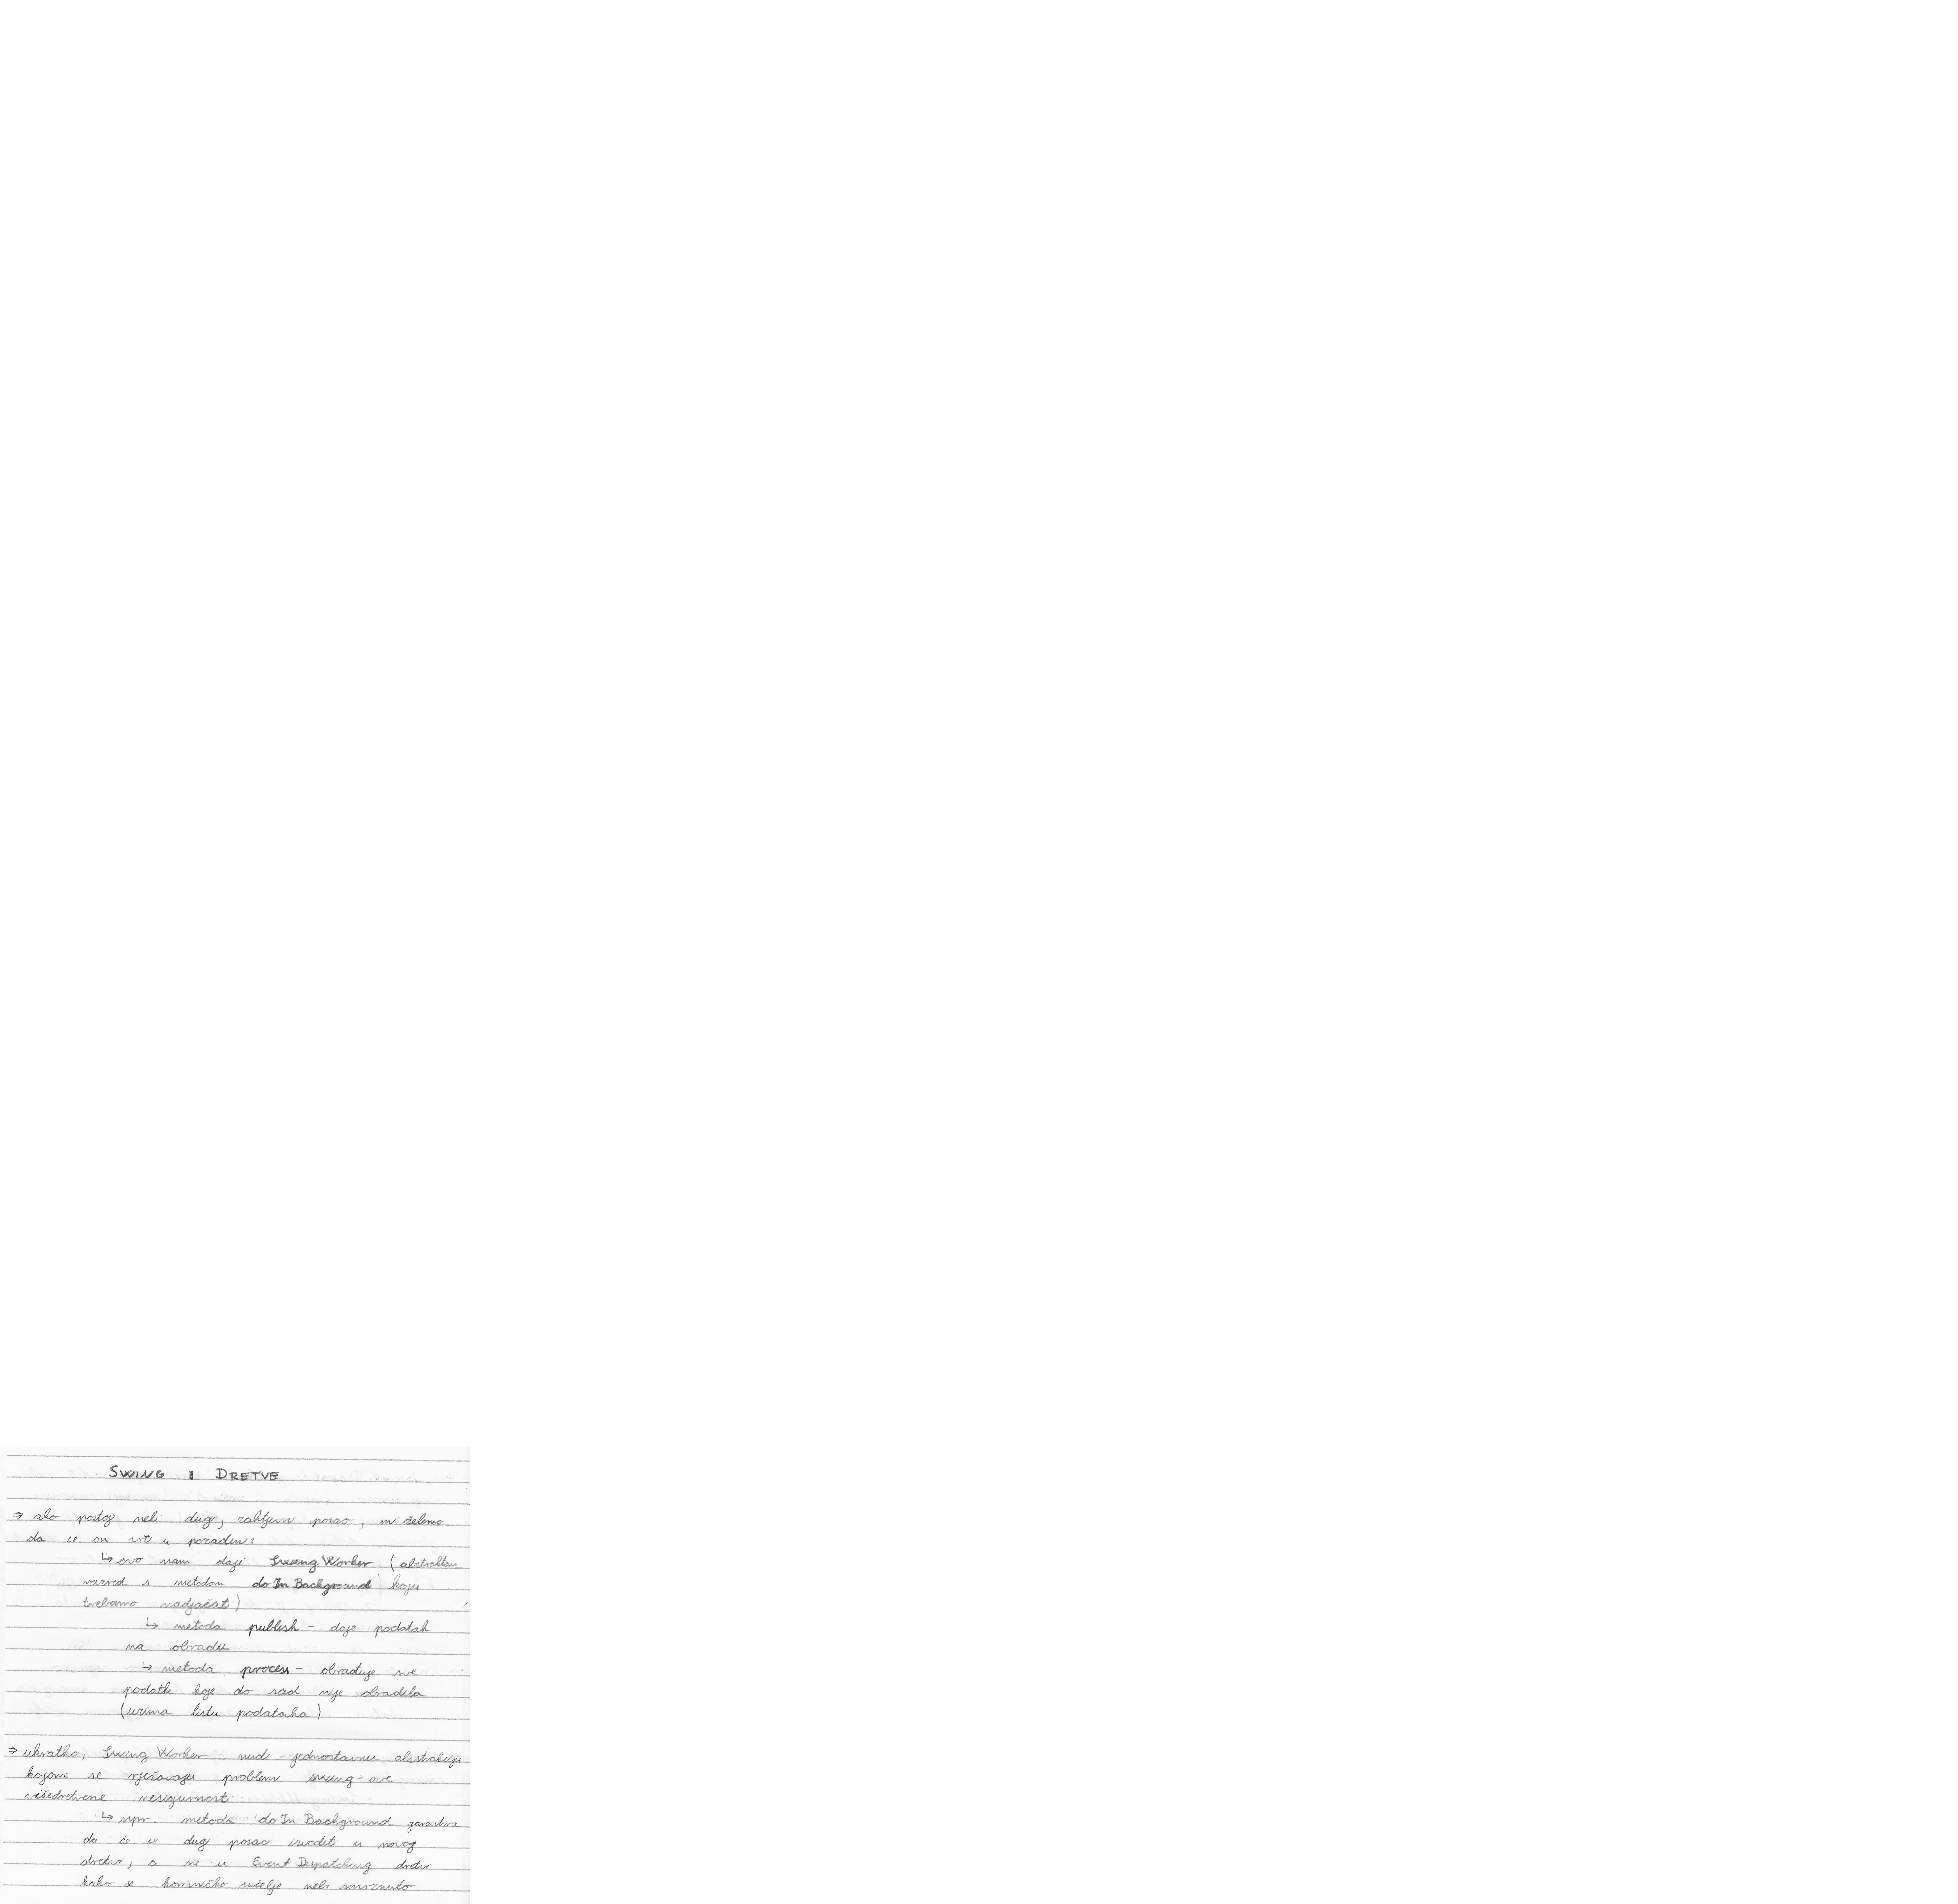 SWING I DRETVE
⇒ ako postoji neki dugi, zahtjevni posao, mi želimo
da se on vrti u pozadini:
↳ ovo nam daje SwingWorker (abstraktan
razred s metodom doInBackground koju
trebamo nadjačati)
↳ metoda publish - daje podatak
na obradu
↳ metoda process - obrađuje sve
podatke koje do sad nije obradila
(uzima listu podataka)
⇒ ukratko, SwingWorker nudi jednostavnu abstrakciju
kojom se rješavaju problem swing-ove
višedretvene nesigurnosti
↳ npr. metoda doInBackground garantira
da će se dugi posao izvodit u novoj
dretvi, a ne u Event Dispatching dretvi
kako se korisničko sučelje nebi smrznulo